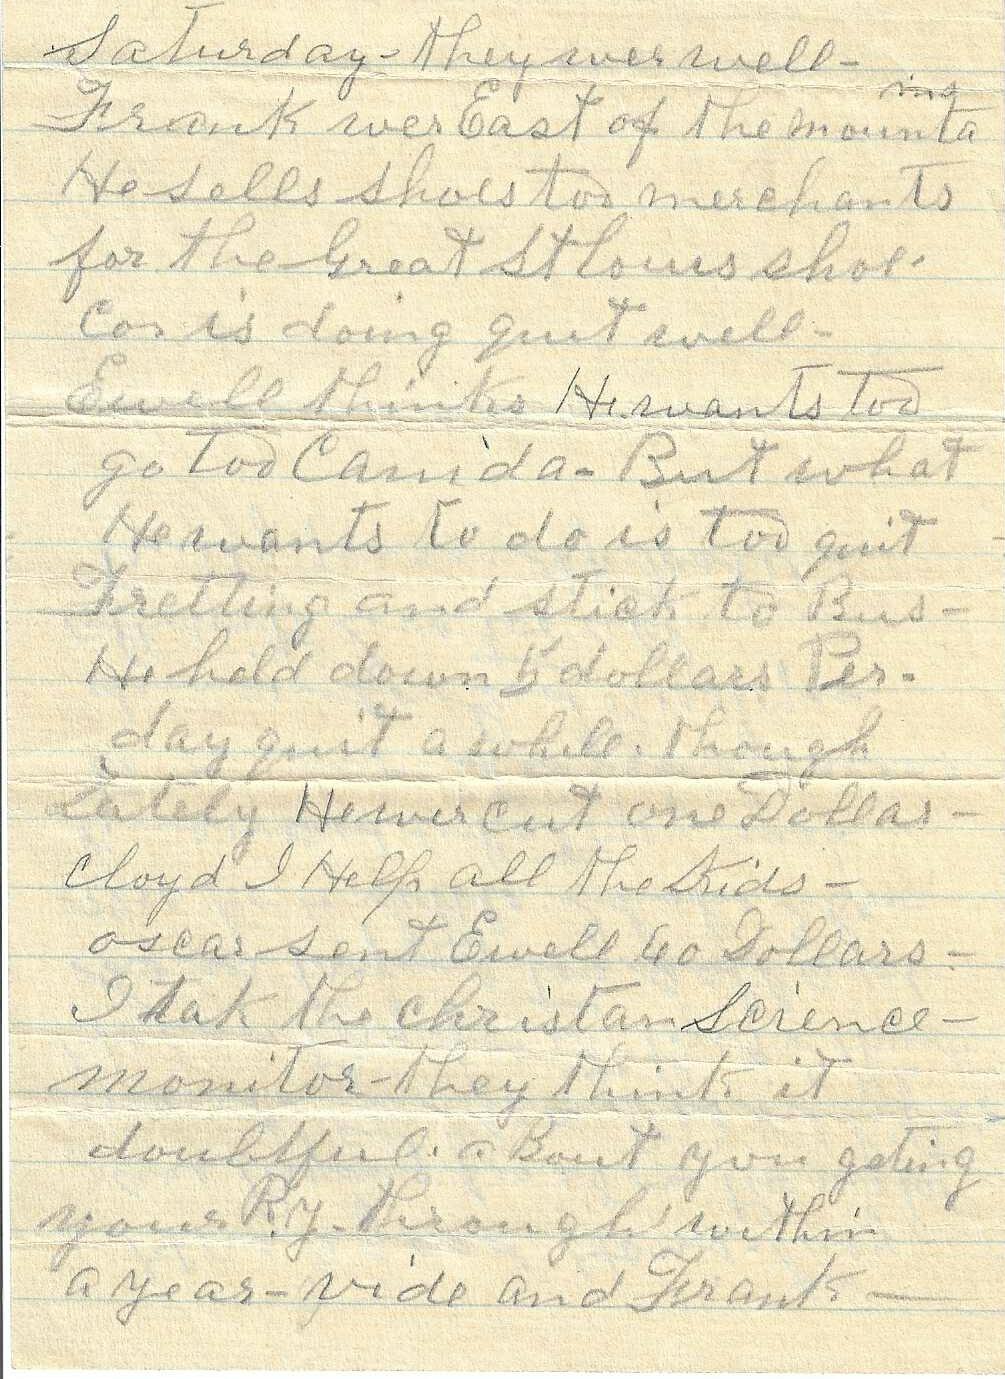 Saturday - they wer well -
Frank wer East of the mounta ins
He sells shoes too merchants
for the Great St Louis shoe.
Co. is doing quit well -
Ewell thinks He wants too
go too Canida - But what
He wants to do is too quit
Fretting and stick to Bus -
He held down 5 dollars Per.
day quit a while. though
Lately He wer cut one Dollar -
Cloyd I Help all the Kids -
oscar sent Ewell 60 Dollars -
I tak the christan Science -
monitor - they think it
doubtful. a Bout you geting
your R.y. through within
a year - vide and Frank -